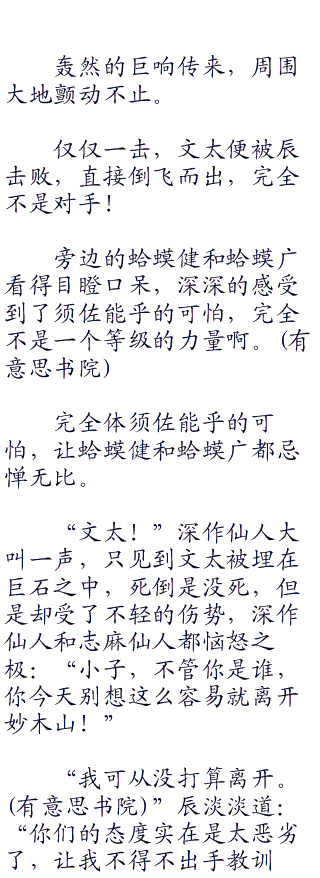 轰然的巨响传来，周围
大地颤动不止。
仅仅一击，文太便被辰
击败，直接倒飞而出，完全
不是对手！
旁边的蛤蟆健和蛤蟆广
看得目瞪口呆，深深的感受
到了须佐能乎的可怕，完全
不是一个等级的力量啊。(有
意思书院)
完全体须佐能乎的可
怕，让蛤蟆健和蛤蟆广都忌
惮无比。
“文太！”深作仙人大
叫一声，只见到文太被埋在
巨石之中，死倒是没死，但
是却受了不轻的伤势，深作
仙人和志麻仙人都恼怒之
极：“小子，不管你是谁，
你今天别想这么容易就离开
妙木山！”
“我可从没打算离开。
(有意思书院)”辰淡淡道：
“你们的态度实在是太恶劣
了，让我不得不出手教训